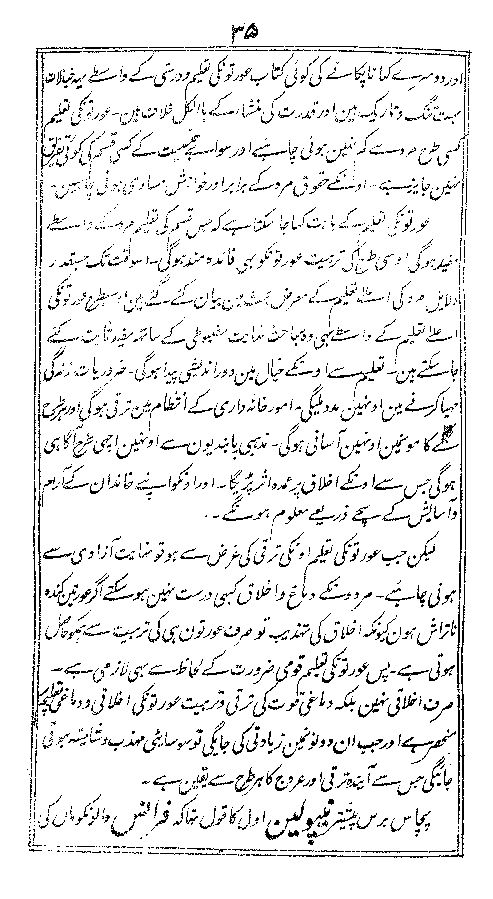 ۳۵
اور دوسرے کھانا پکانے کی کوئی کتاب عورتونکی تعلیم و درستی کے واسطے یہ خیالات
بہت تنگ و تاریک ہین اور قدرت کی منشاء کے بالکل خلاف ہین۔ عورتونکی تعلیم
کسی طرح مردسے کم نہین ہونی چاہیے اور سواے جنسیت کے کسی قسم کی کوئی تفریق
نہین جایز ہے۔ اونکے حقوق مردکے برابر اور خواہش مساوی ہونی چاہین۔
عورتونکی تعلیم کے بابت کہا جاسکتا ہے کہ جس قسم کی تعلیم مرد کے واسطے
مفید ہوگی اوسی طرح کی تربیت عورتونکو بھی فائدہ مند ہوگی۔ اسوقت تک جسقدر
دلایل مرد کی اعلا تعلیم کے معرض بحث مین بیان کئے گئے ہین اوسیطرح عورتونکی
اعلا تعلیم کے واسطے بھی وہ مباحث نہایت مضبوطی کے ساتھ مفید ثابت کئے
جاسکتے ہین۔ تعلیم سے اونکے خیال مین دور اندیشی پیدا ہوگی۔ ضروریات زندگی
مہیا کرنے مین اونہین مدد ملیگی۔ امور خانہ داری کے انتظام مین ترقی ہوگی اور ہر طرح
کے کامونمین اونہین آسانی ہوگی۔ مذہبی پابندیون سے اونہین اچھی طرح آگاہی
ہوگی جس سے اونکے اخلاق پر عمدہ اثر پڑیگا۔ اور انکو اپنے خاندان کے آرام
و آسایش کے سچے ذریعے معلوم ہونگے۔
لیکن جب عورتونکی تعلیم اونکی ترقی کی غرض سے ہو تو نہایت آزادی سے
ہونی چاہئے۔ مردونکے دماغ و اخلاق کبھی درست نہین ہوسکتے اگر عورتین کندہ
ناتراش ہون کیونکہ اخلاق کی تہذیب تو صرف عورتون ہی کی تربیت سے ہمکو حاصل
ہوتی ہے۔ پس عورتونکی تعلیم قومی ضرورت کے لحاظ سے بھی لازمی ہے۔
صرف اخلاقی نہین بلکہ دماغی قوت کی ترقی و تربیت عورتونکی اخلاقی و دماغی تعلیم پر
منحصر ہے اور جب ان دونونمین زیادتی کی جایگی تو سوسایٹی مہذب و شایستہ ہوتی
جائیگی جس سے آیندہ ترقی اور عروج کا ہر طرح سے یقین ہے۔
پچاس برس پیشتر نیپولین اول کا قول تھا کہ فرانس والونکو ماں کی